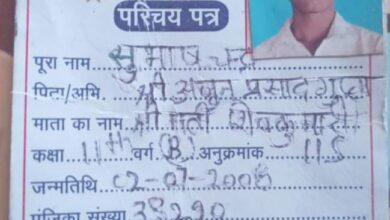 परिचय पत्र
पूरा नाम सुभाष चन्द्र
पिता/अभि. श्री अर्जुन प्रसाद गुप्ता
माता का नाम श्री मती शिवकुमारी
कक्षा 11th वर्ग (B) अनुक्रमांक 115
जन्मतिथि 02-07-2008
पंजिका संख्या 38290